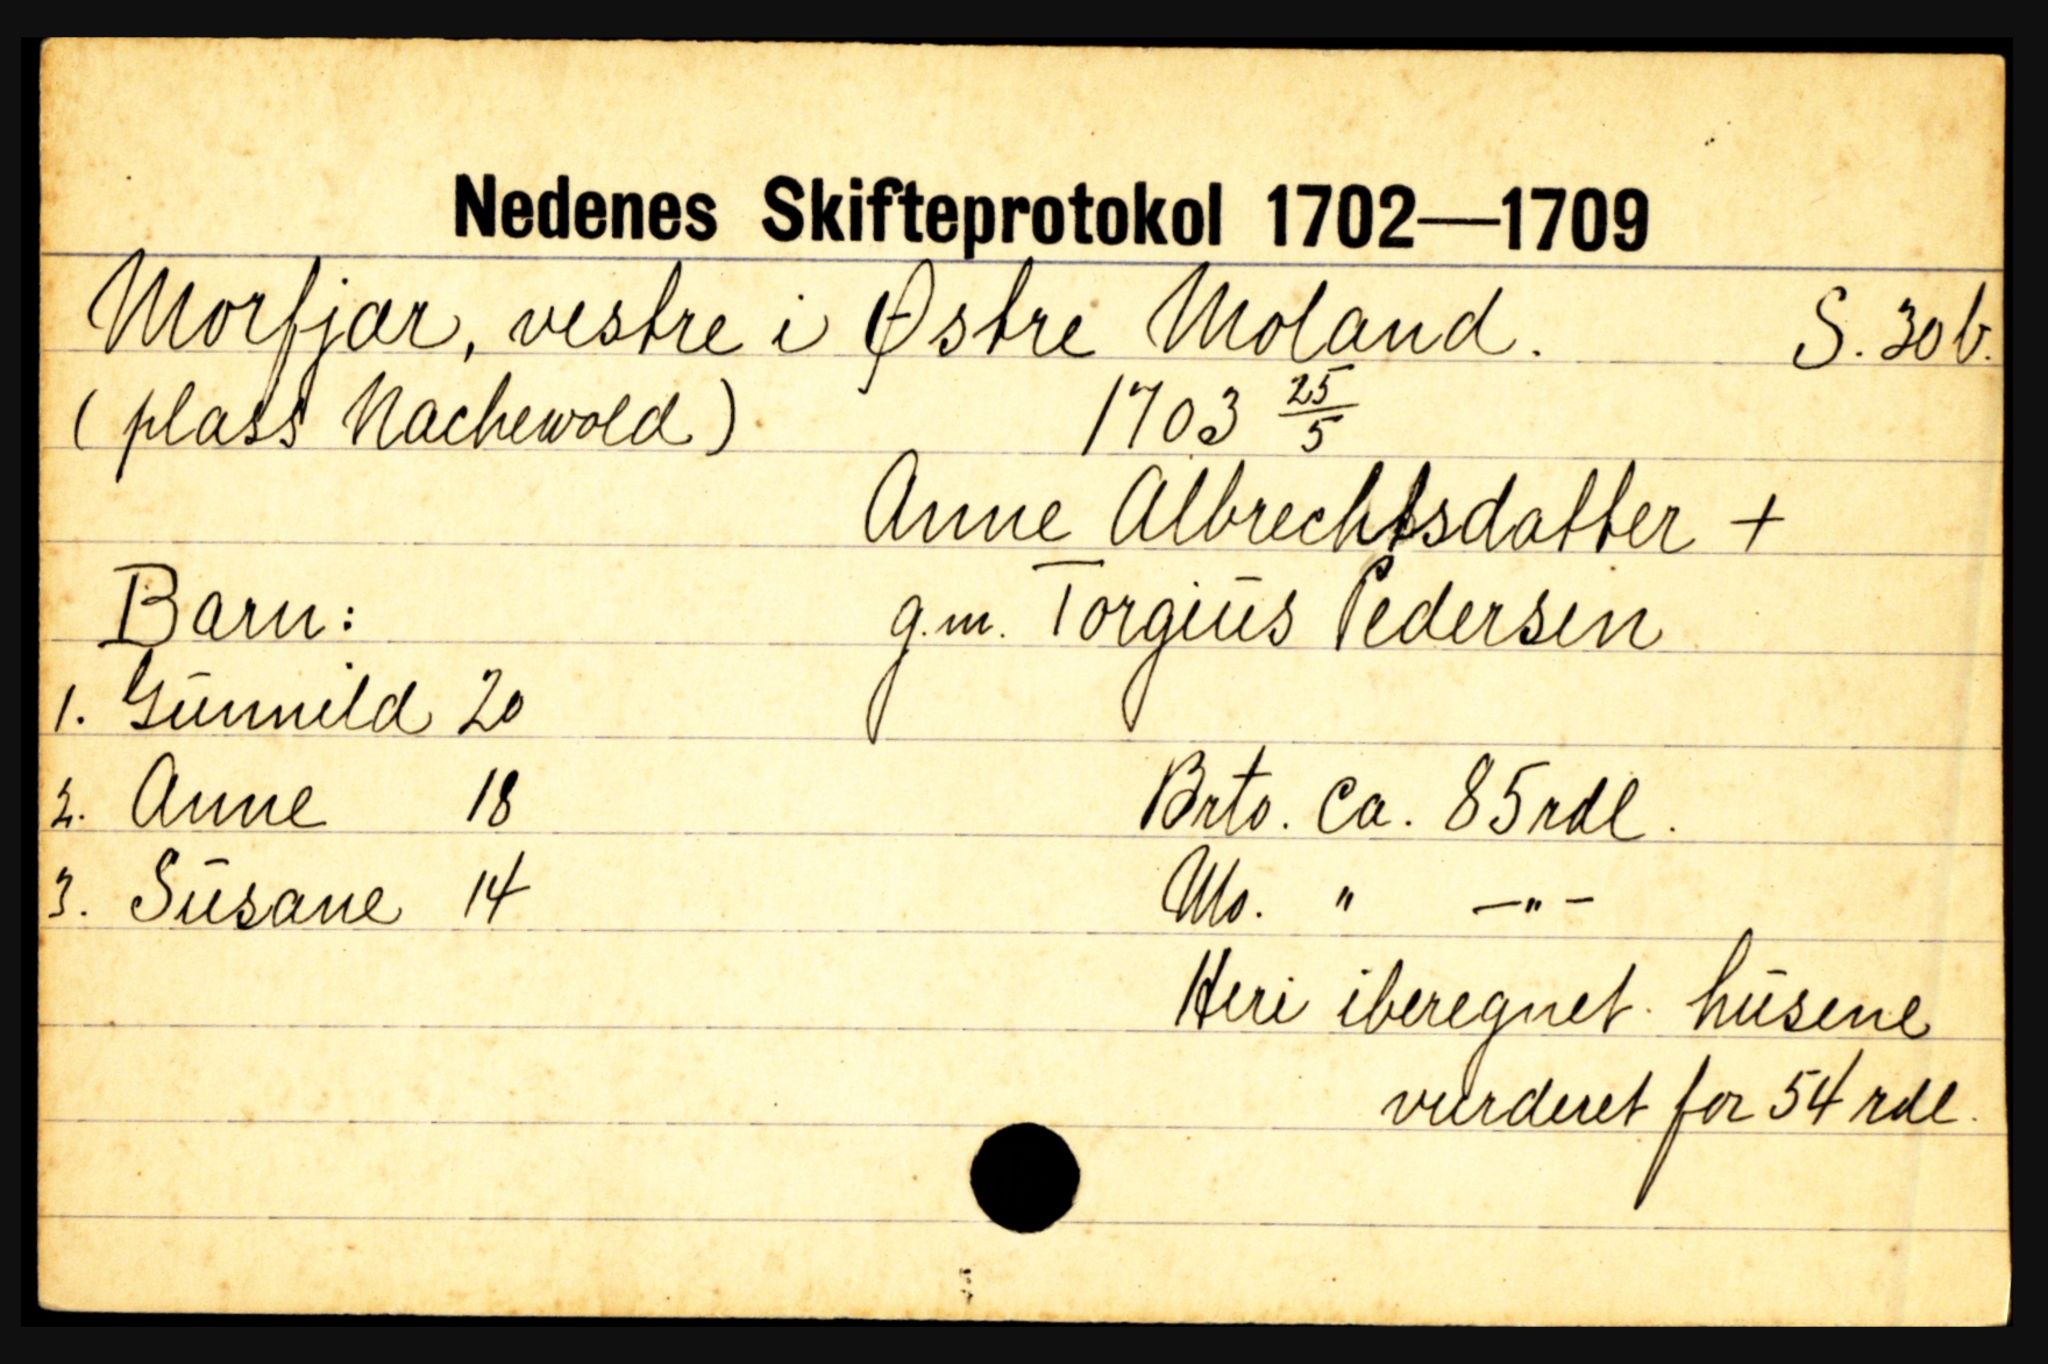 Nedenes Skifteprotokol 1702—1709
Morfjær, vestre i Østre Moland. S. 30 b.
(plass Nachewold) 1703 25/5
Anne Albrechtsdatter +
Barn: g.m. Torgius Pedersen
1. Gunnild 20
2. Anne 18 Brto. Ca. 85 rdl.
3. Susane 14 No. " —"—
Heri iberegnet husene
vurderet for 54 rdl.